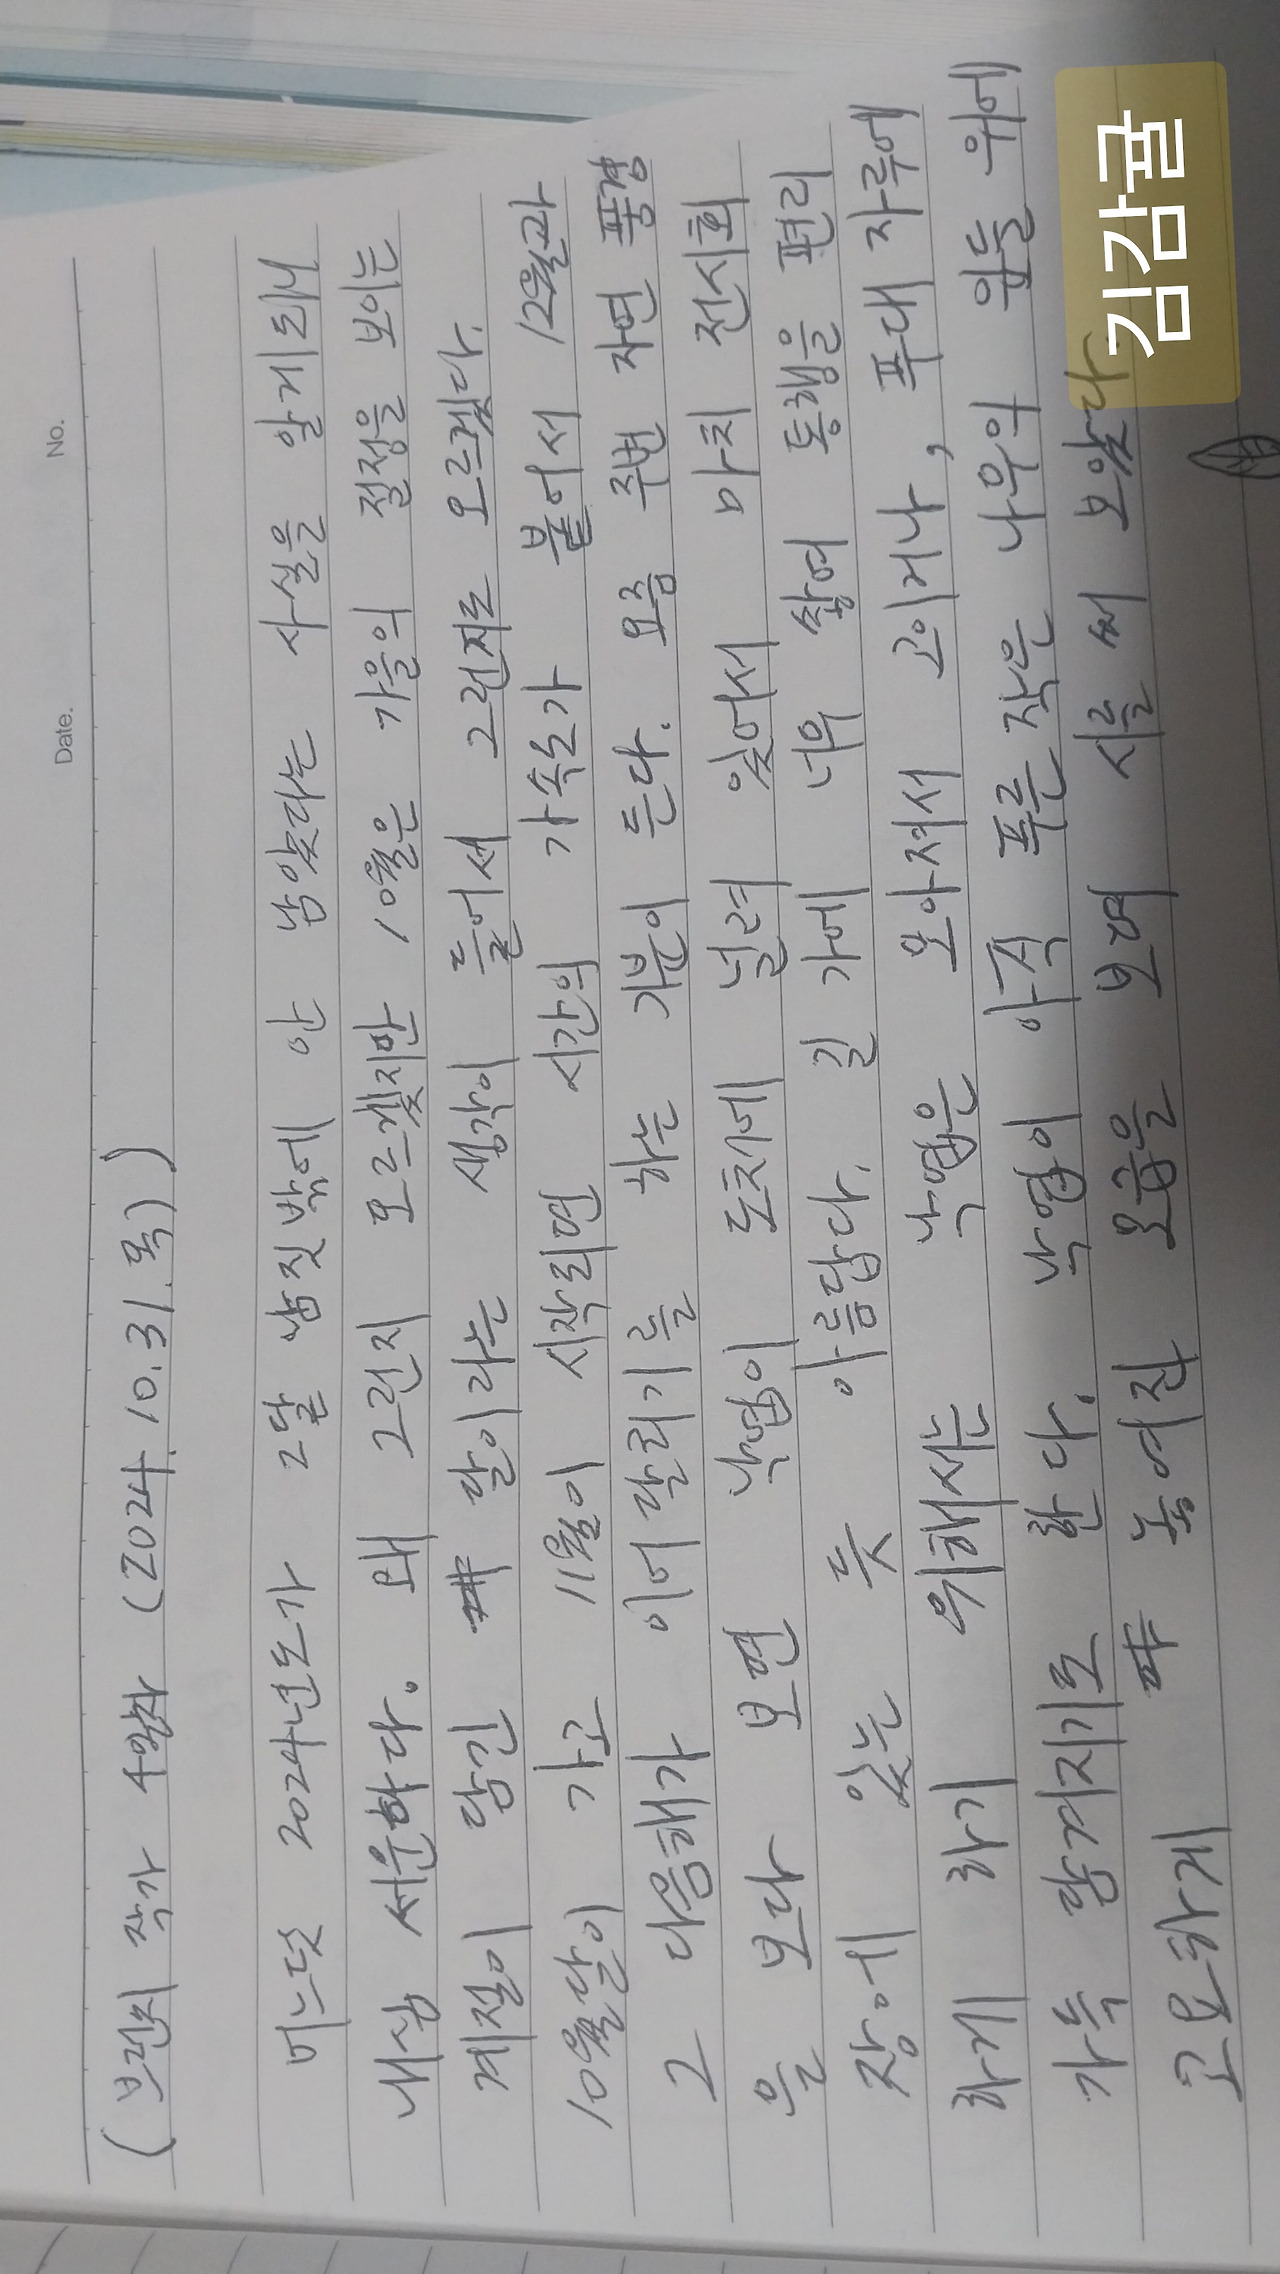 No.
Date.
(브런치 작가 4일차 (2024.10.31.목))
어느덧 2024년도가 2달 남짓밖에 안 남았다는 사실을 알게되니
내심 서운하다. 왜 그런지 모르겠지만 10월은 가을의 절정을 보이는
계절이 담긴 달이라는 생각이 들어서 그런지도 모르겠다.
10월달이 가고 11월이 시작되면 시간의 가속도가 붙어서 12월과
그 다음해가 이어달리기를 하는 기분이 든다. 요즘 주변 자연 풍경
을 보다 보면 낙엽이 도처에 널려 있어서 마치 전시회
장에 있는 듯 아름답다. 길 가에 너무 쌓여 통행을 편리
하게 하기 위해서는 낙엽은 모아져서 모이거나, 푸대 자루에
가득 담겨지기도 한다. 낙엽이 아직 푸른 작은 나무의 잎들 위에
고요하게 놓여진 모습을 보며 시를 써 보았다.
김감귤